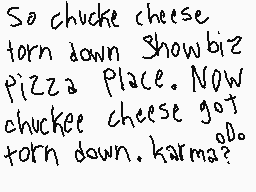 So chucke cheese
torn down Showbiz
Pizza Place. Now
chuckee cheese got
torn down. karma?